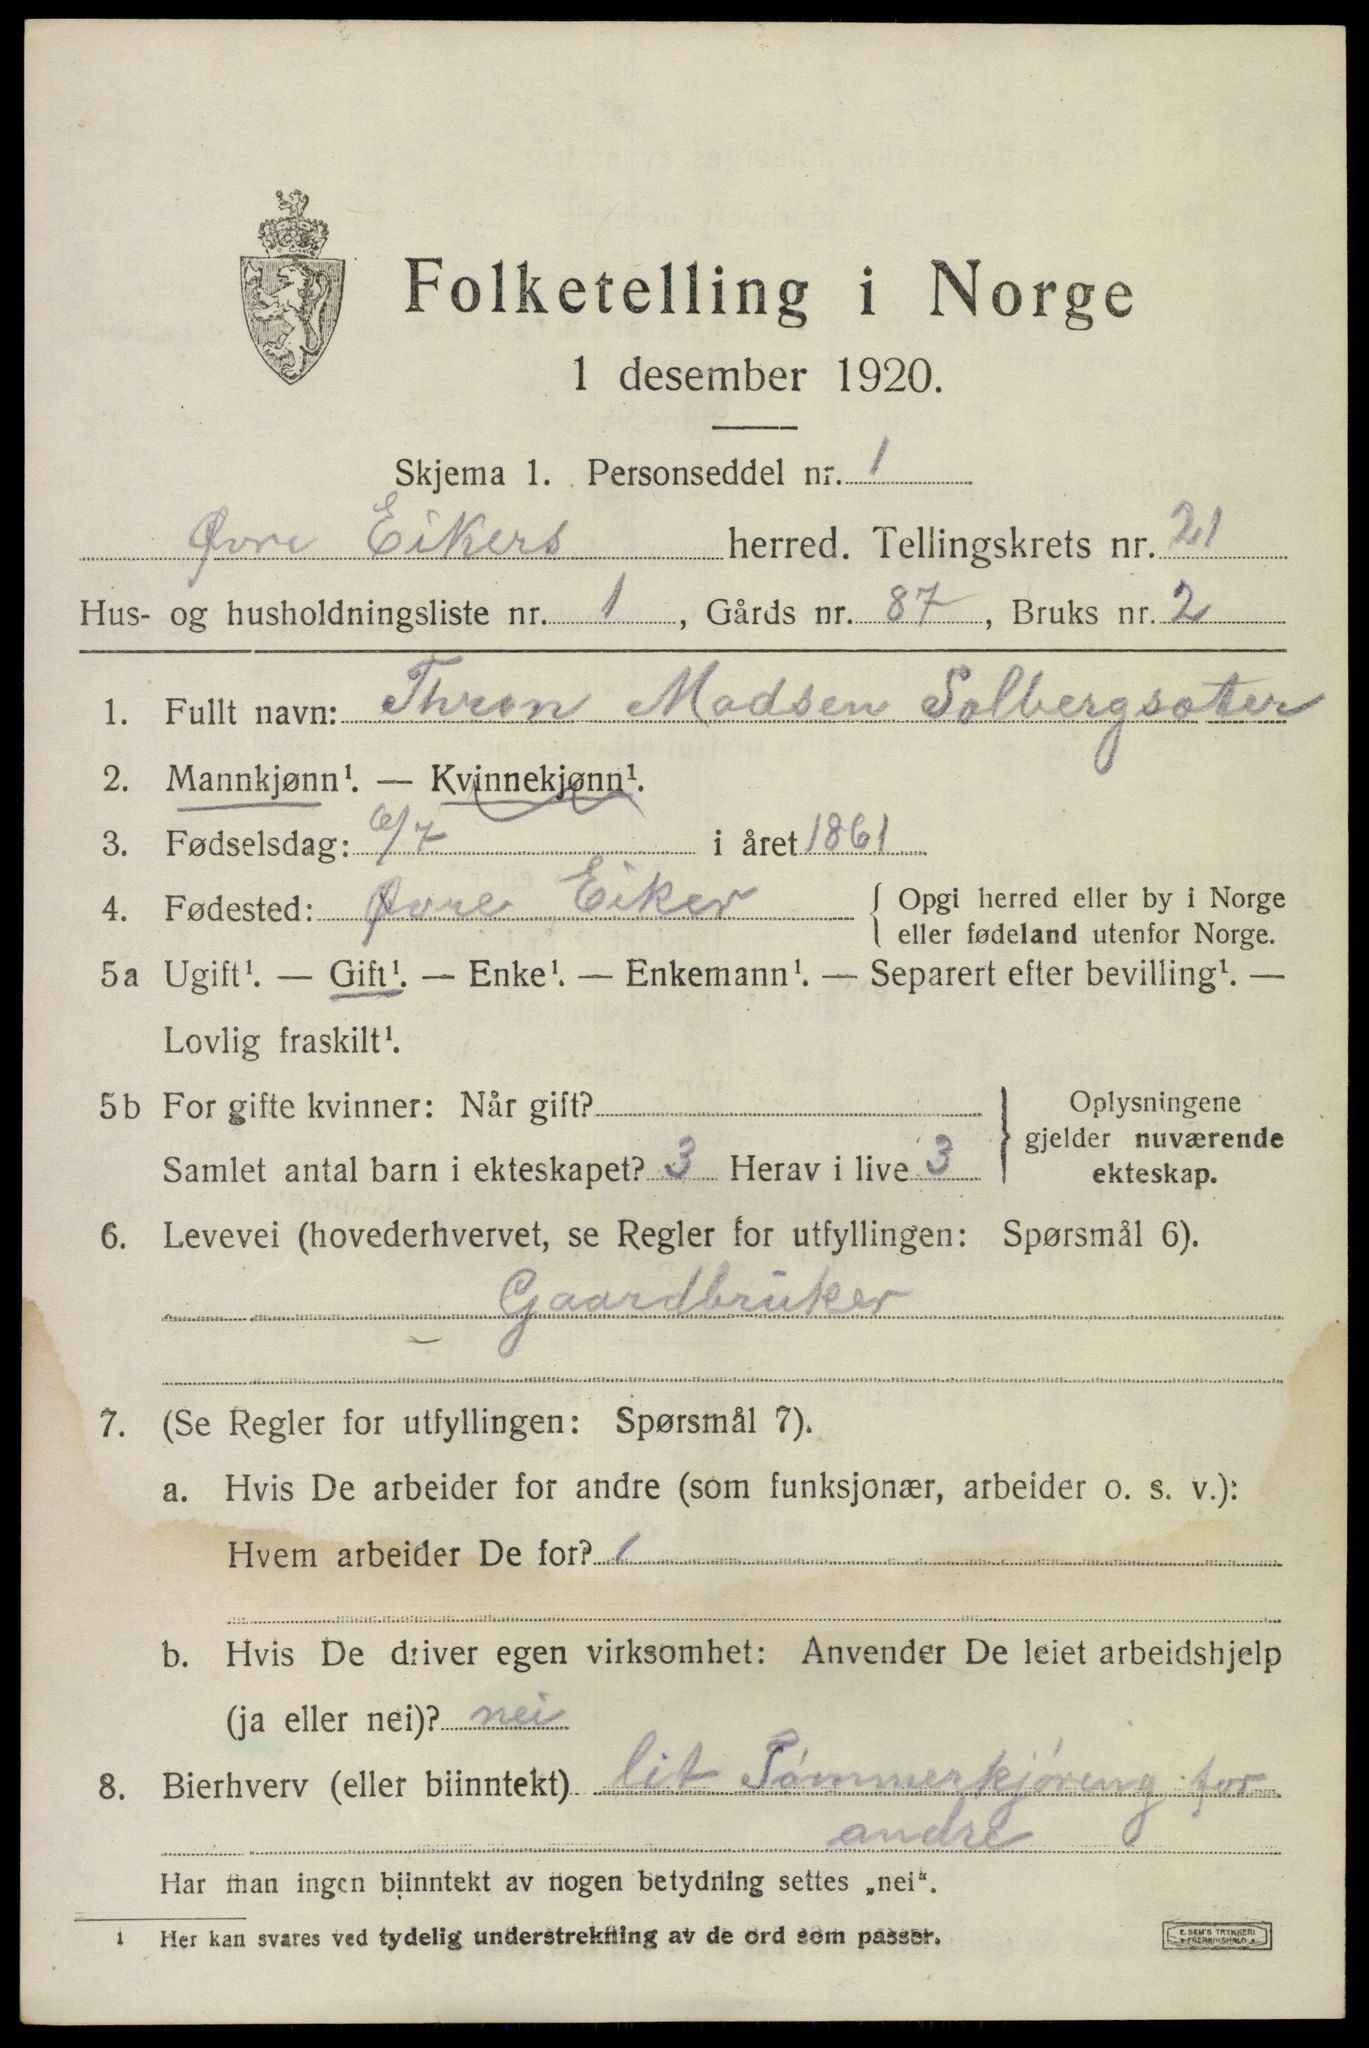 Folketelling i Norge
1 desember 1920.
Skjema 1. Personseddel nr. 1
Øvre Eikers herred. Tellingskrets nr. 21
Hus- og husholdningsliste nr. 1, Gårds nr. 87, Bruks nr. 2
1. Fullt navn: Thron Madsen Solbergsæter
2. Mannkjønn¹. — Kvinnekjønn¹.
3. Fødselsdag: 6/7 i året 1861
4. Fødested: Øvre Eiker { Opgi herred eller by i Norge
eller fødeland utenfor Norge.
5a Ugift¹. — Gift¹. — Enke¹. — Enkemann¹. — Separert efter bevilling¹. —
Lovlig fraskilt¹.
5b For gifte kvinner: Når gift?
Samlet antal barn i ekteskapet? 3 Herav i live 3
} Oplysningene
gjelder nuværende
ekteskap.
6. Levevei (hovederhvervet, se Regler for utfyllingen: Spørsmål 6).
Gaardbrùker
7. (Se Regler for utfyllingen: Spørsmål 7).
a. Hvis De arbeider for andre (som funksjonær, arbeider o. s. v.):
Hvem arbeider De for?
b. Hvis De driver egen virksomhet: Anvender De leiet arbeidshjelp
(ja eller nei)? nei
8. Bierhverv (eller biinntekt) lit Tømmerkjøreng for
andre
Har man ingen biinntekt av nogen betydning settes „nei“.
1 Her kan svares ved tydelig understrekning av de ord som passer.
E. SEM'S TRYKKERI
FREDRIKSHALD